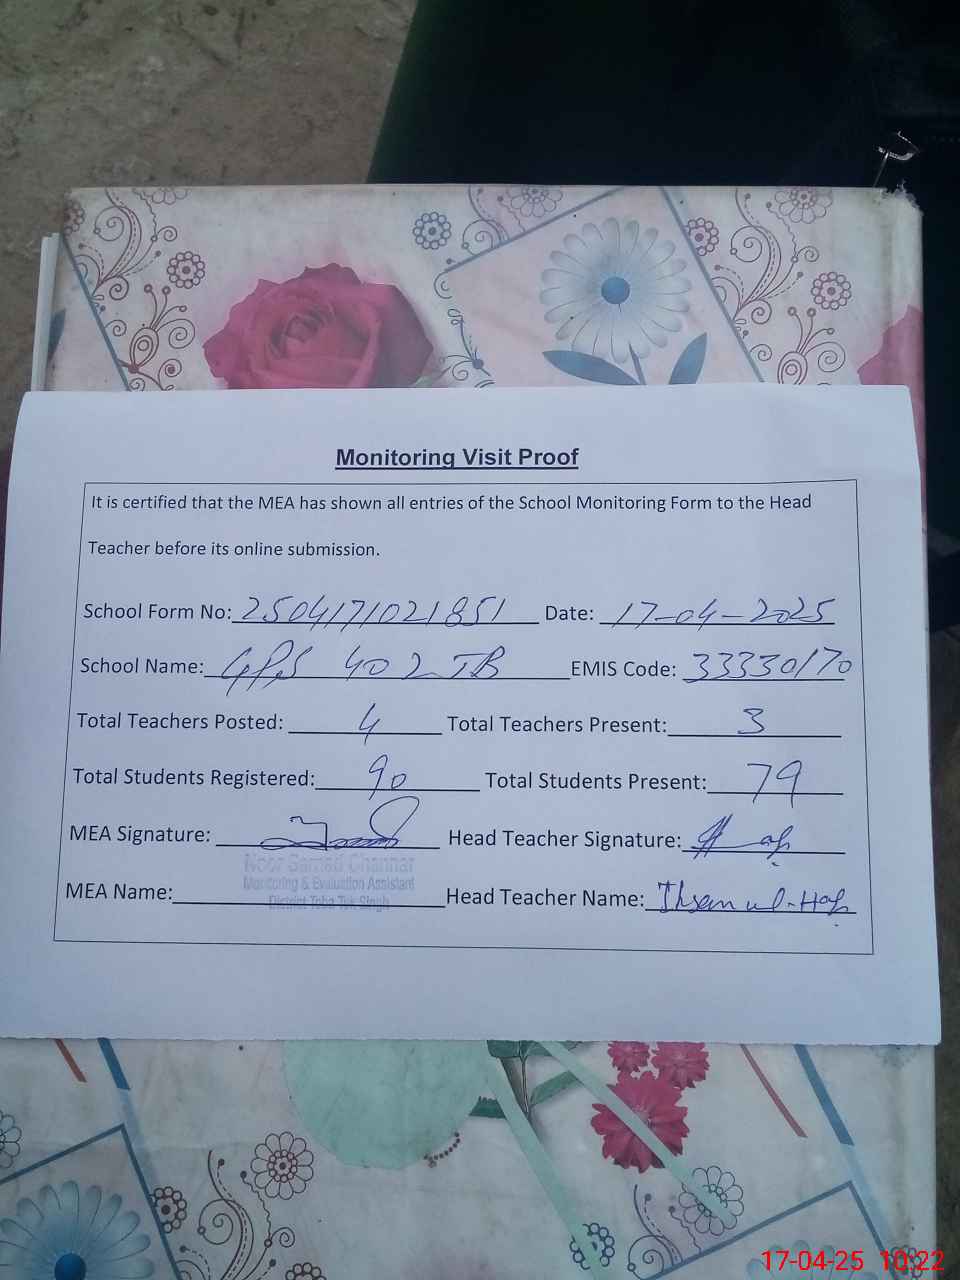 Monitoring Visit Proof
It is certified that the MEA has shown all entries of the School Monitoring Form to the Head
Teacher before its online submission.
School Form No: 2504171021851 Date: 17-04-2025
School Name: GPS 402 JB EMIS Code: 33330170
Total Teachers Posted: 4 Total Teachers Present: 3
Total Students Registered: 90 Total Students Present: 79
MEA Signature: Head Teacher Signature:
Monitoring & Evaluation Assistant
District Toba Tek Singh
MEA Name: Head Teacher Name: Ihsan ul-Haq
17-04-25 10:22